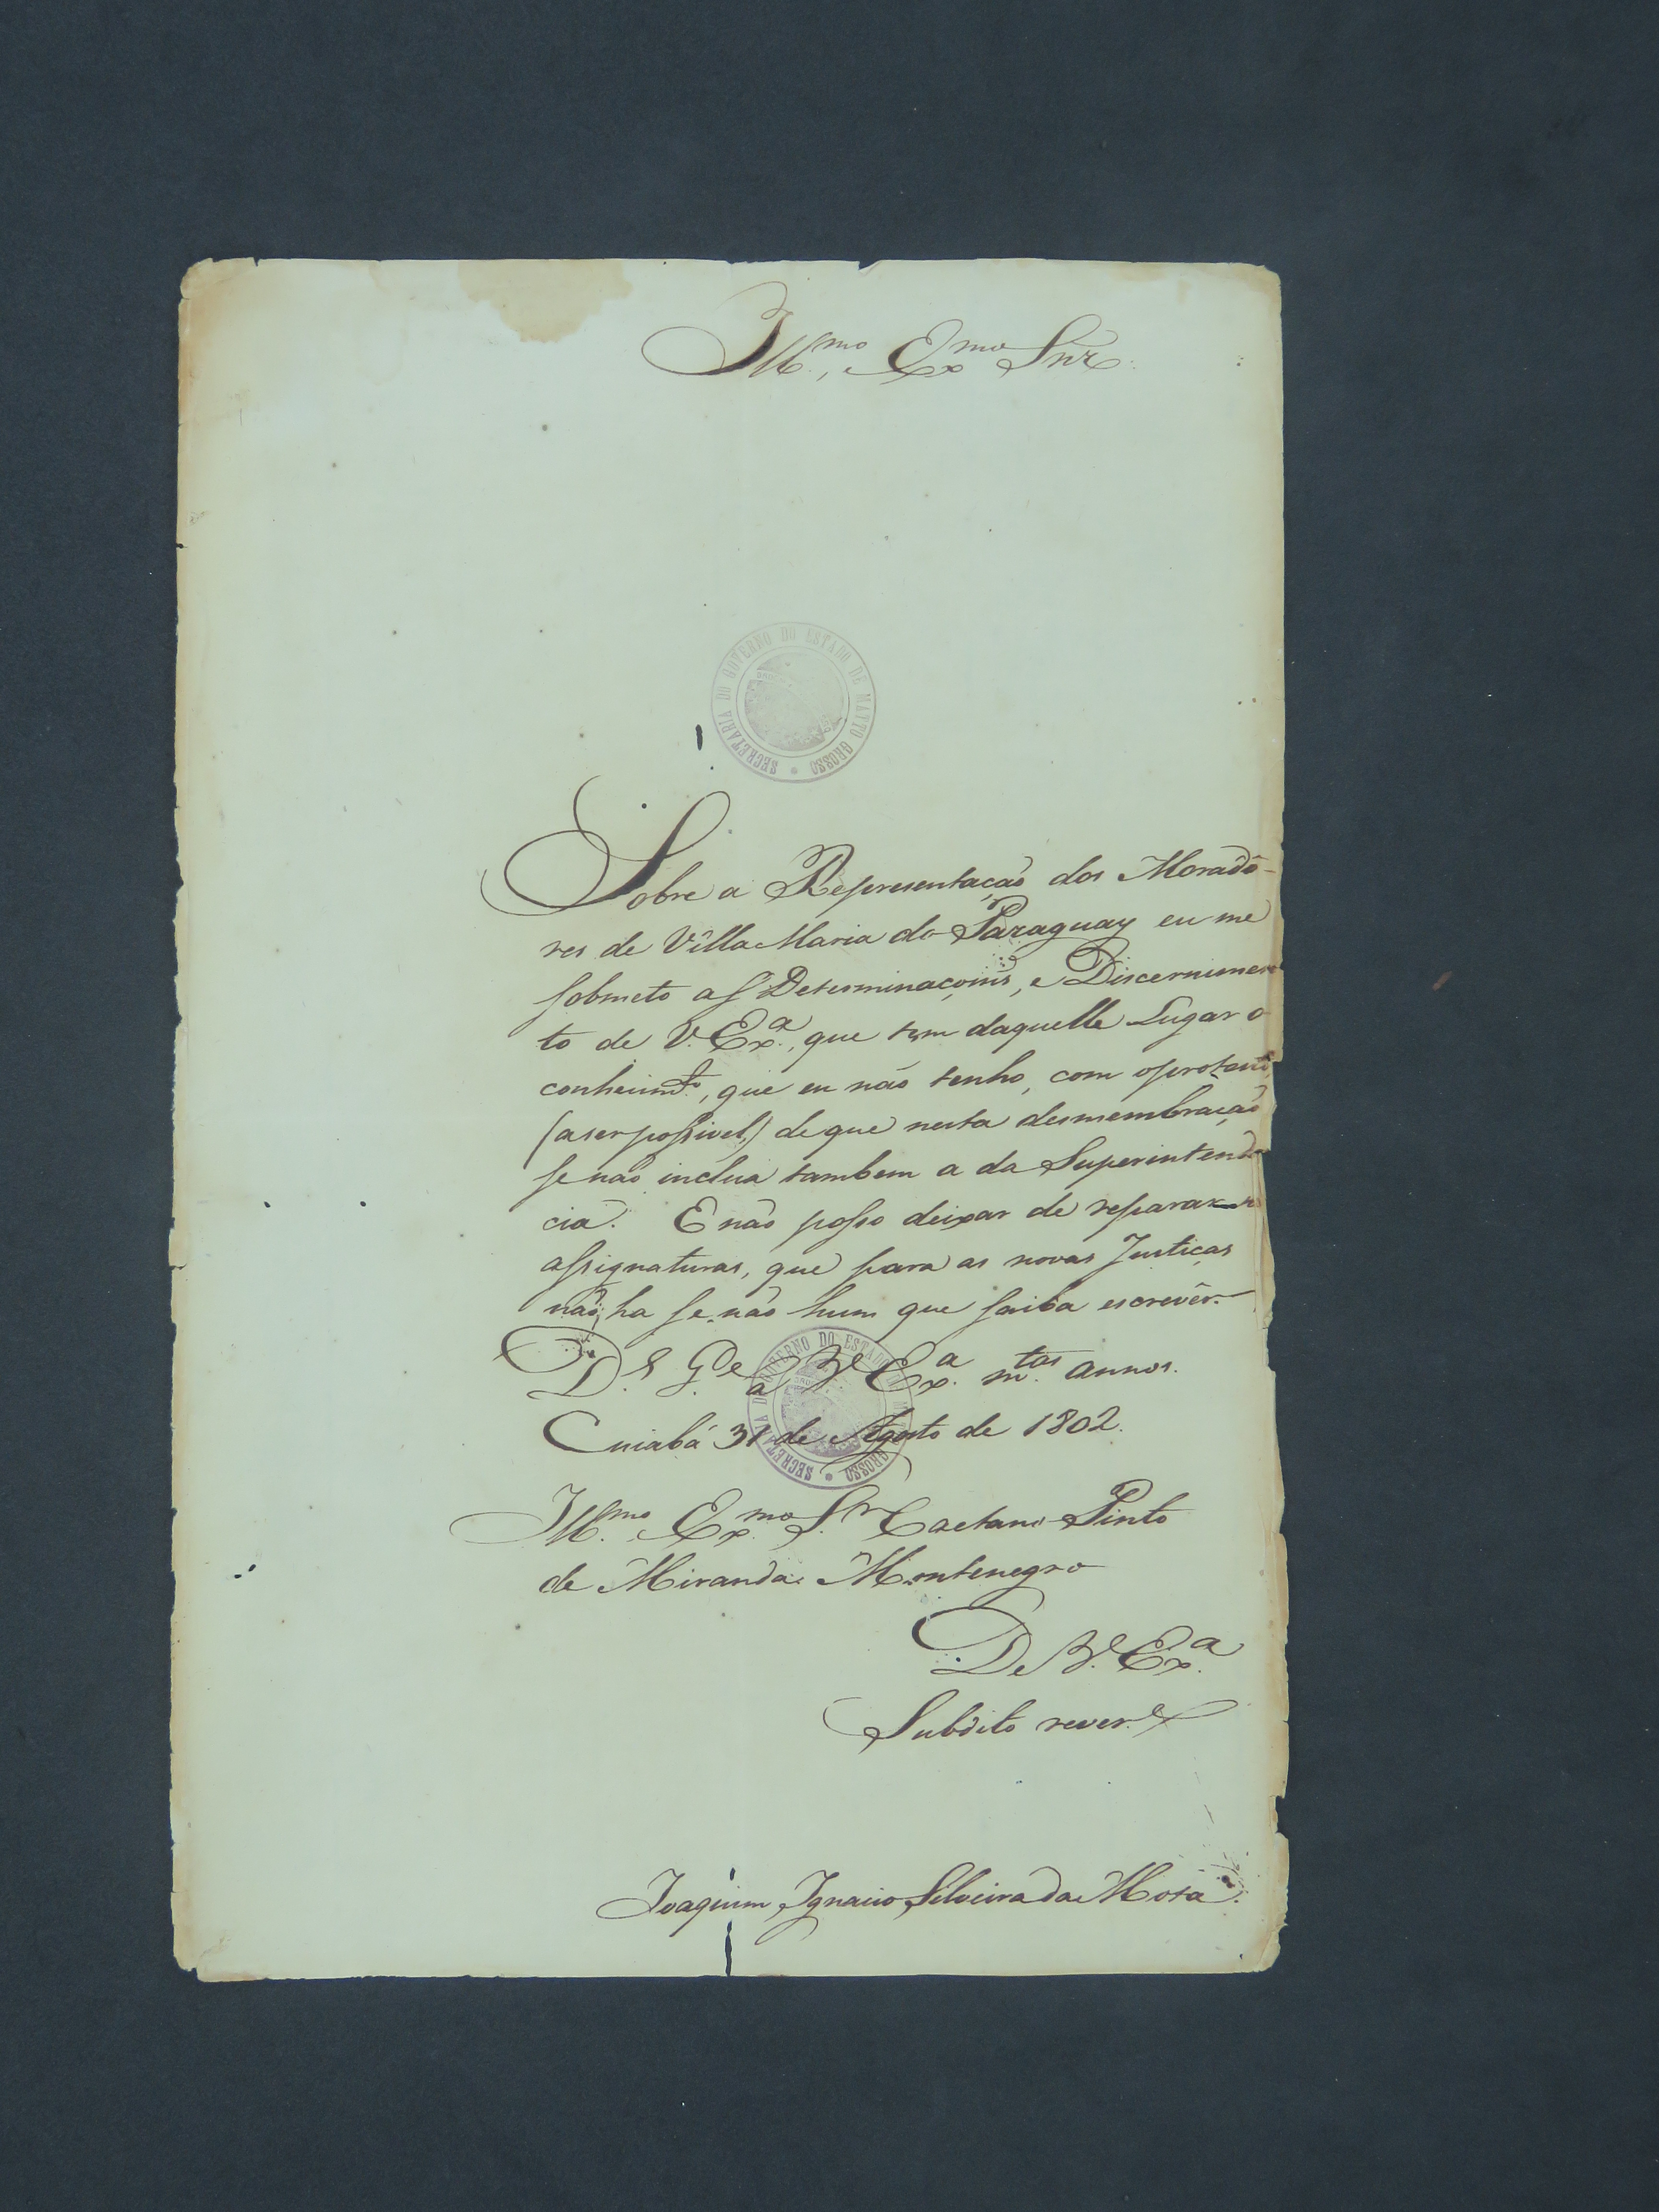 Ill.mo, Ex.mo Snr.
SECRETARIA DO GOVERNO DO ESTADO DE MATTO GROSSO
Sobre a Representação dos Moradô-
res de Villa Maria do Paraguay eu me
sobmeto as Determinaçoins, e Discernimen
to de V. Ex.a, que tem daquelle Lugar o
conhecim.to, que eu não tenho, com o protesto,
(a ser possivel,) de que nesta desmembração
se não inclua tambem a da Superintend
cia. E não posso deixar de reparar n
assignaturas, que para as novas Justiças
não ha se não hum que saiba escrevêr.
D.s G.de a V. Ex.a m.tos annos.
SECRETARIA DO GOVERNO DO ESTADO DE MATTO GROSSO
Cuiabá 31 de Agosto de 1802.
Ill.mo Ex.mo S.r Caetano Pinto
de Miranda Montenegro
De V. Ex.a
Subdito rever.e
Joaquim Ignacio Silveira da Mota.